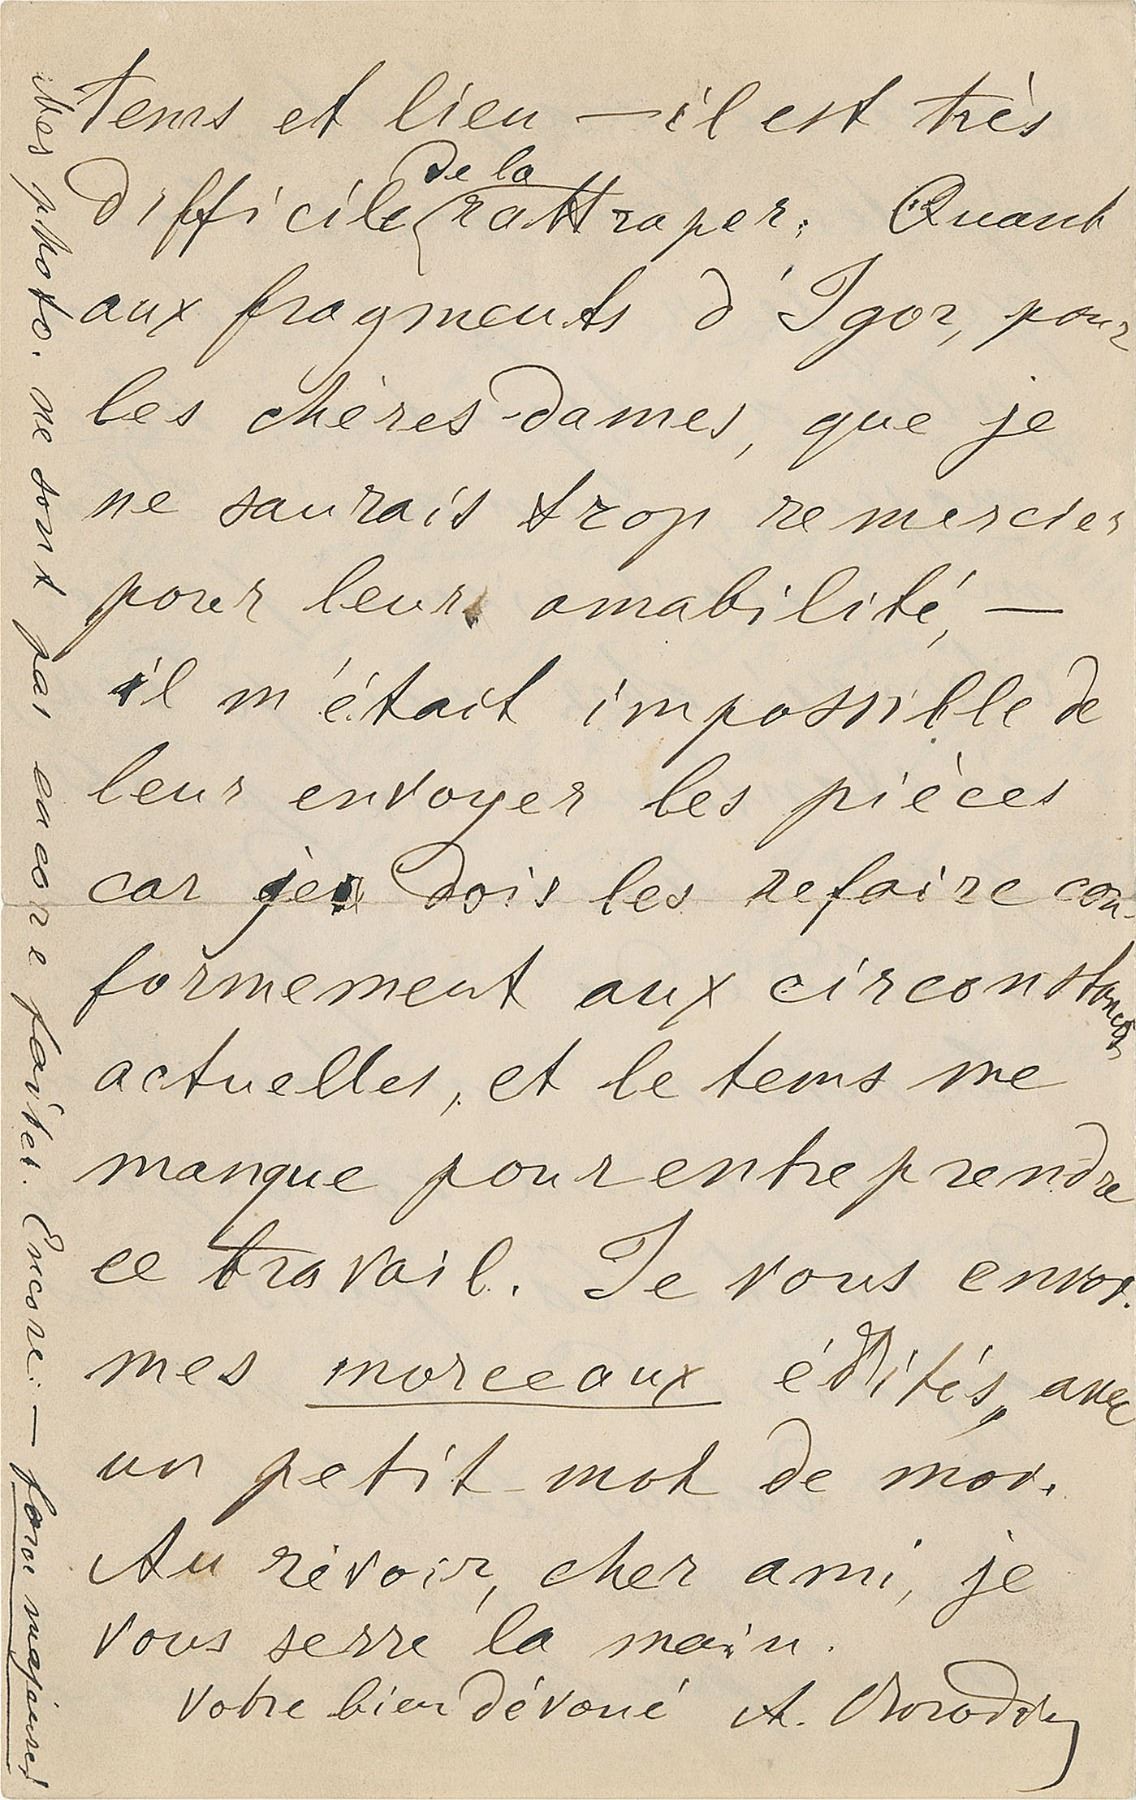 tems et lieu — il est très
difficile de la rattraper. Quant
aux fragments d'Igor, pour
les chères dames, que je
ne saurais trop remercier
pour leur amabilité, —
il m'était impossible de
leur envoyer les pièces
car je dois les refaire con-
formement aux circonstances
actuelles, et le tems me
manque pour entreprendre
ce travail. Je vous envoi
mes morceaux édités, avec
un petit mot de moi.
Au révoir, cher ami, je
vous serre la main.
Votre bien dévoué A. Borodin
Mes photo. ne sont pas encore faites. Encore: — force majeure!